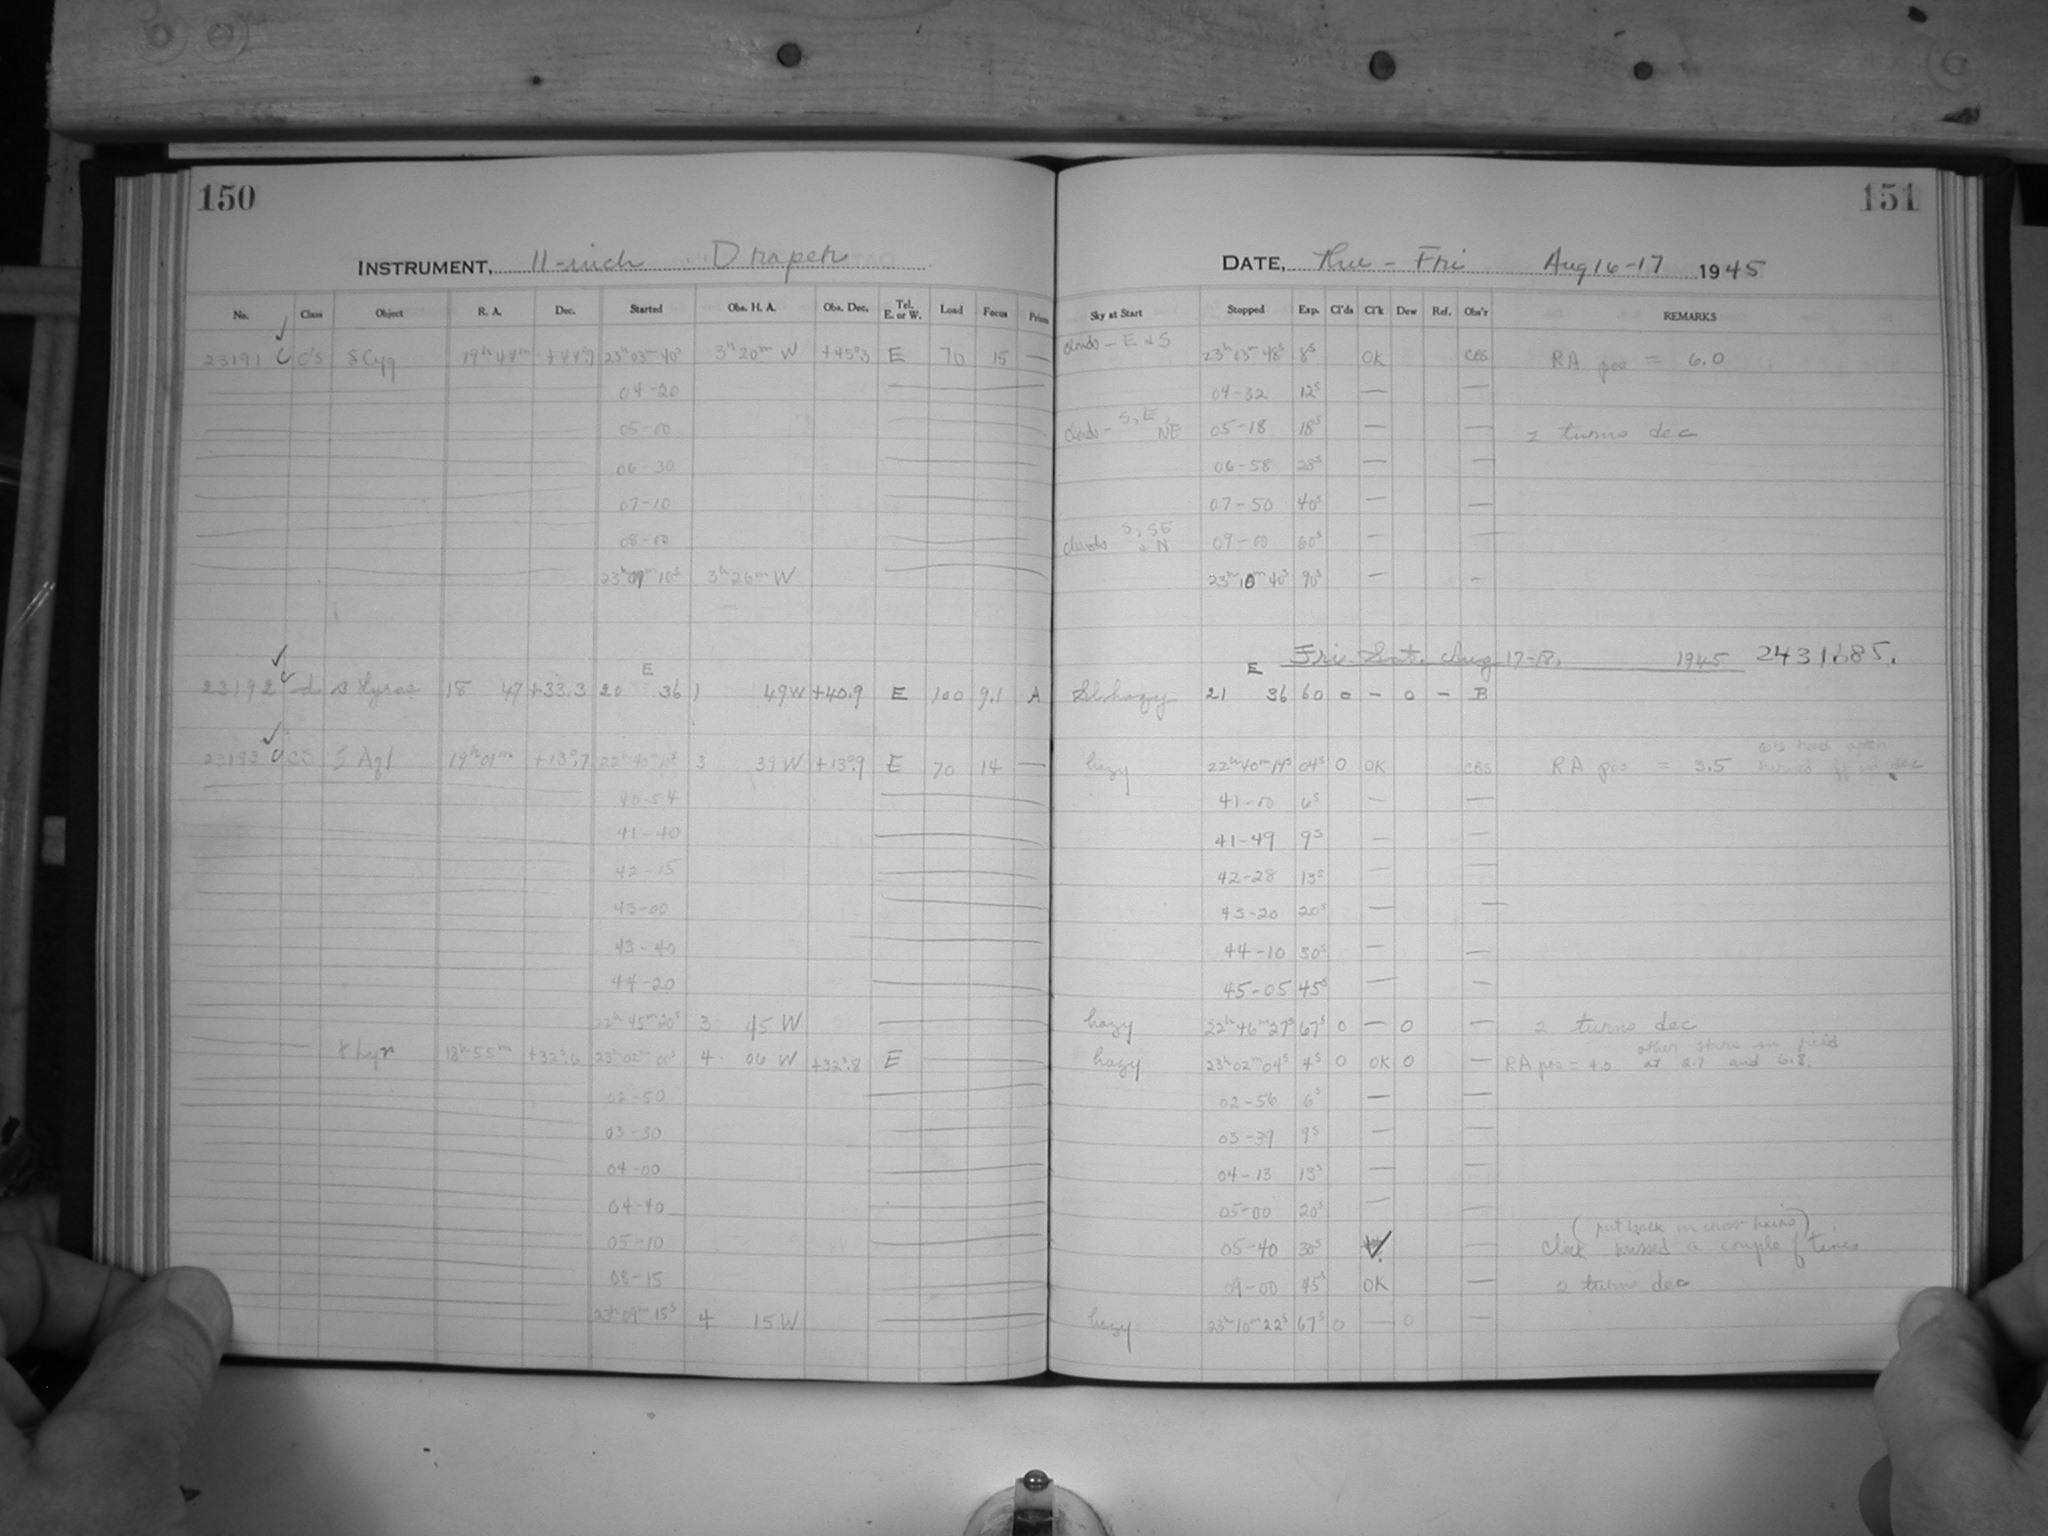 150
INSTRUMENT, 11-inch Draper
No. Class Object R. A. Dec. Started Obs. H. A. Obs. Dec. Tel. E. or W. Load Focus Prism
23191 C C's δ Cyg 19h 44m +44°.9 23h 03m 40s 3h 20m W +45°.3 E 70 15 —
04-20
05-00
06-30
07-10
08-00
23h 09m 10s 3h 26m W
23192 d β Lyrae 18 47 +33.3 20 E 36 1 49W +40.9 E 100 9.1 A
23193 CS ζ Aql 19h 01m +13°.7 22h 40m 10s 3 39 W +13°.9 E 70 14 —
40-54
41-40
42-15
43-00
43-40
44-20
22h 45m 20s 3 45 W
γ Lyr 18h 55m +32°.6 23h 02m 00s 4 06 W +32°.8 E
02-50
03-30
04-00
04-40
05-10
08-15
23h 09m 15s 4 15 W
151
DATE, Thu - Fri Aug 16-17 1945
Sky at Start Stopped Exp. Cl'ds Cl'k Dew Ref. Obs'r REMARKS
clouds - E & S 23h 03m 48s 8s OK CBS RA pos = 6.0
04-32 12s —
clouds - S, E, NE 05-18 18s — 2 turns dec
06-58 28s —
07-50 40s —
clouds S, SE & N 09-00 60s —
23h 10m 40s 90s —
Fri. Sat. Aug 17-18, 1945 2431685.
Sl. hazy 21 E 36 60 0 - 0 - B
hazy 22h 40m 14s 04s 0 OK CBS RA pos = 3.5 turned in dec
41-00 6s —
41-49 9s —
42-28 13s —
43-20 20s —
44-10 30s —
45-05 45s —
hazy 22h 46m 27s 67s 0 — 0 — 2 turns dec
hazy 23h 02m 04s 4s 0 OK 0 — RA pos = 4.0 other stars in field at 2.7 and 6.8.
02-56 6s —
03-39 9s —
04-13 13s —
05-00 20s —
05-40 30s — (put back on cross hairs) Clock missed a couple of times
09-00 45s OK — 2 turns dec
hazy 23h 10m 22s 67s 0 — 0 —